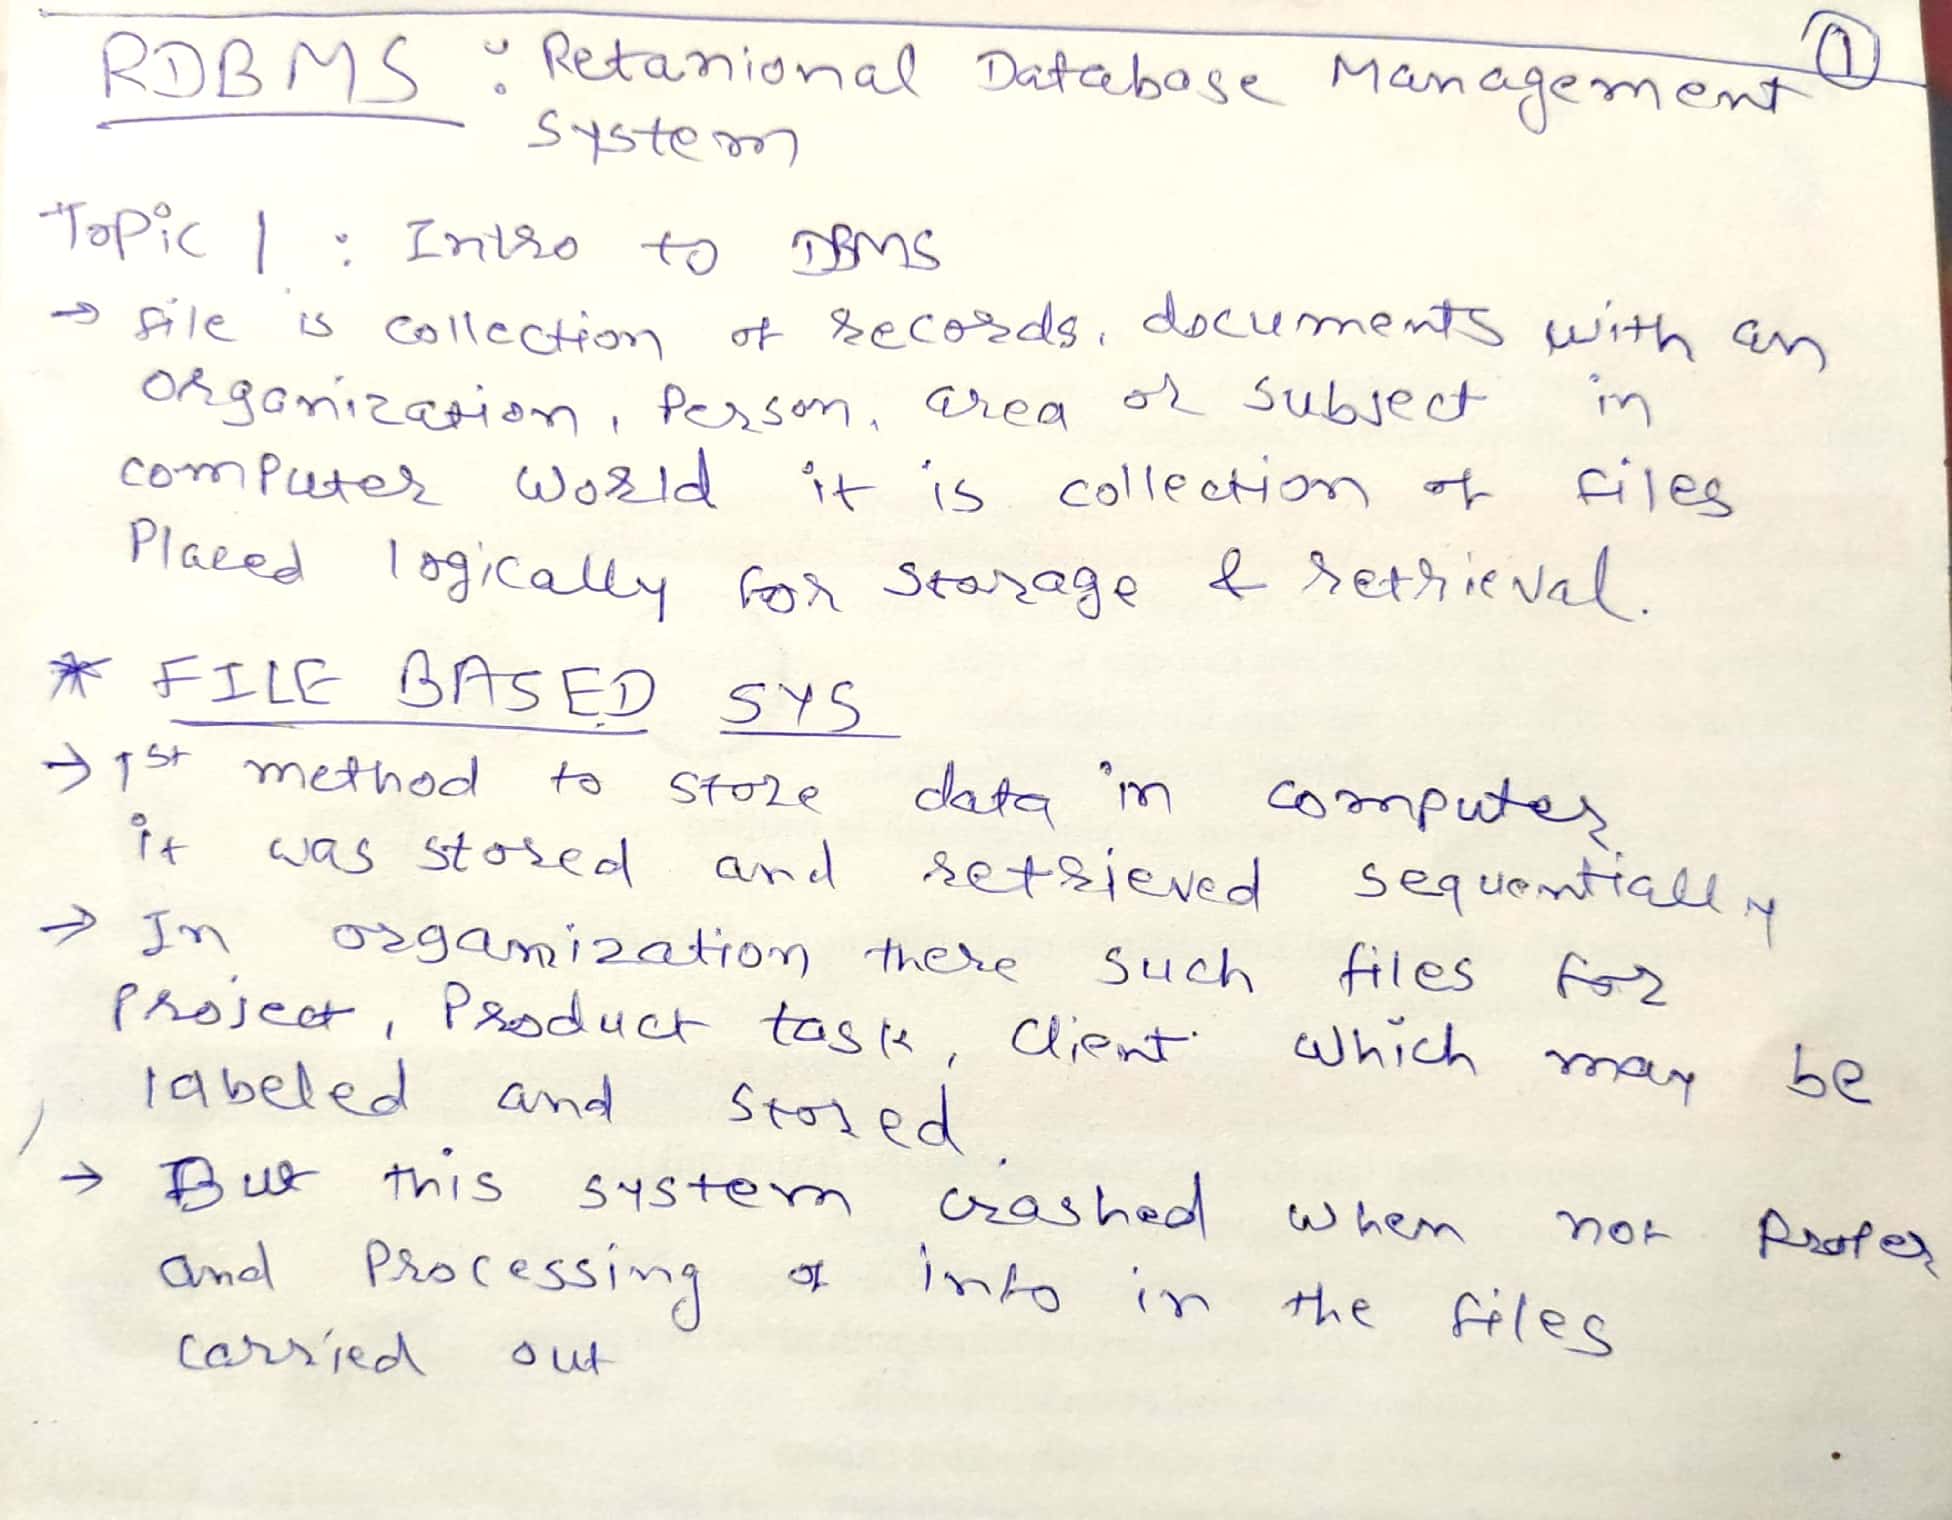 ①
RDBMS : Retanional Database Management
System
Topic 1 : Intro to DBMS
→ file is collection of records, documents with an
organization, Person, area or subject in
computer world it is collection of files
Placed logically for storage & retrieval.
* FILE BASED SYS
→ 1st method to store data in computer
it was stored and retrieved sequentially
→ In organization there such files for
project, Product task, Client which may be
labeled and stored.
→ But this system crashed when not Proper
and Processing of info in the files
carried out